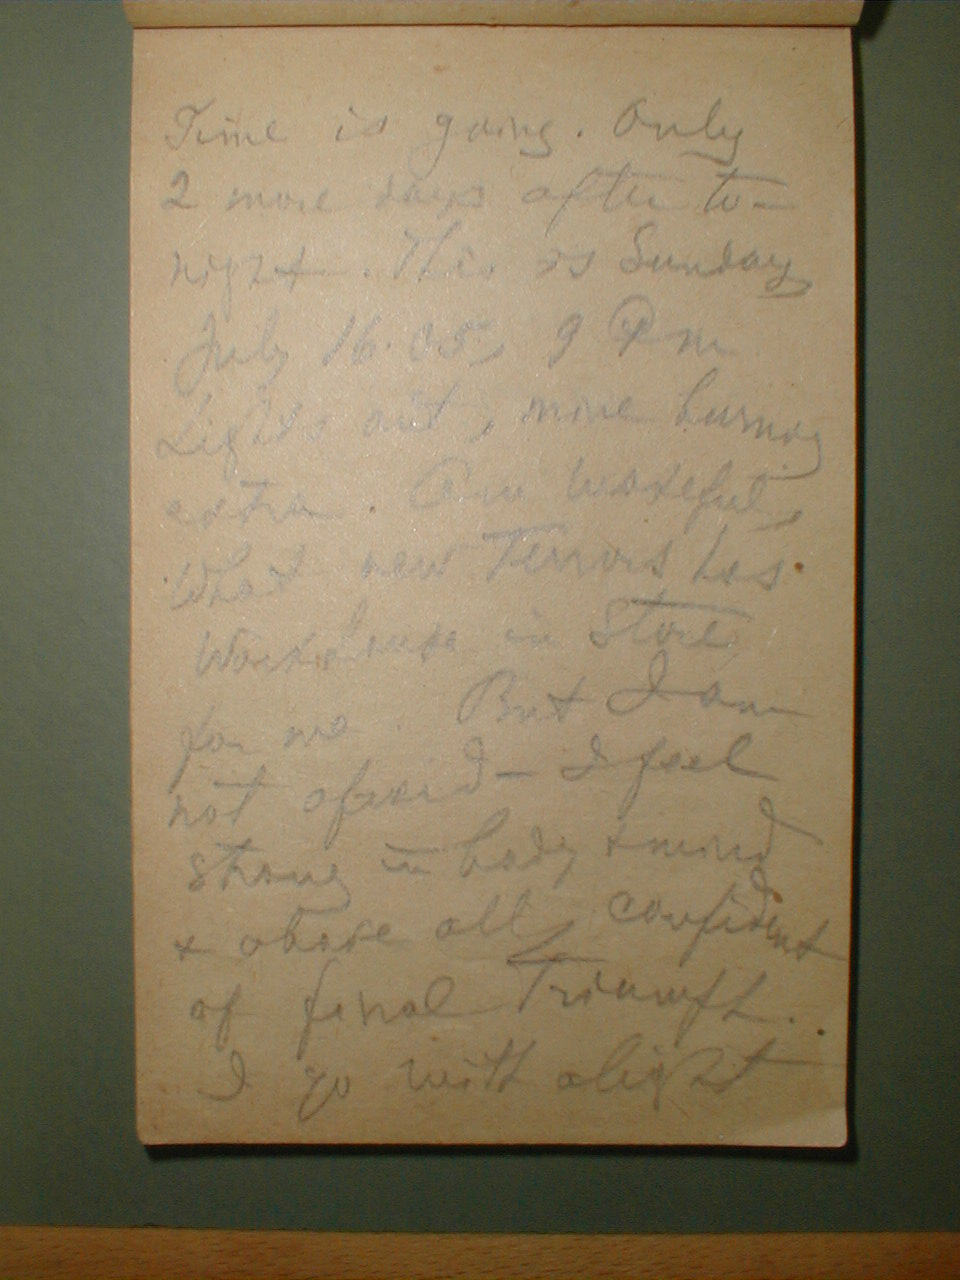 Time is going. Only
2 more days after to-
night. This is Sunday
July 16. 05, 9 P m
Lights out, mine burning
extra. Am wakeful,
What new Terrors has
Workhouse in store
for me. But I am
not afraid - I feel
strong in body & mind
& above all, confident
of final Triumph.
I go with a light